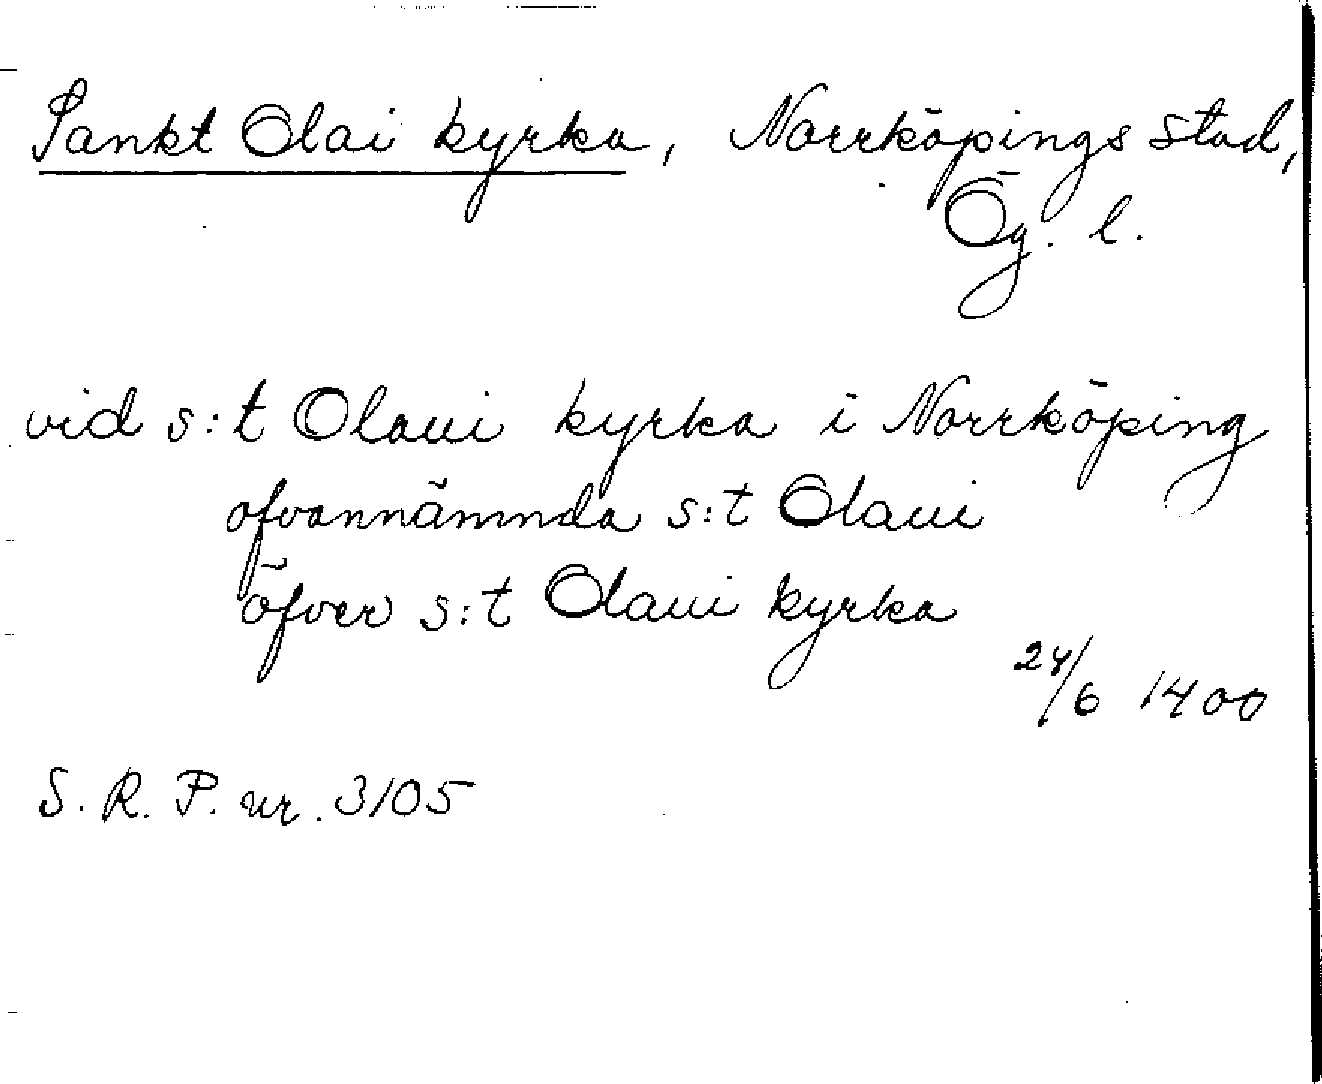 Sankt Olai kyrka, Norrköpings stad,
Ög. l.
vid s:t Olaui kyrka i Norrköping
ofvannämnda s:t Olaui
öfver s:t Olaui kyrka
24/6 1400
S. R. P. nr. 3105